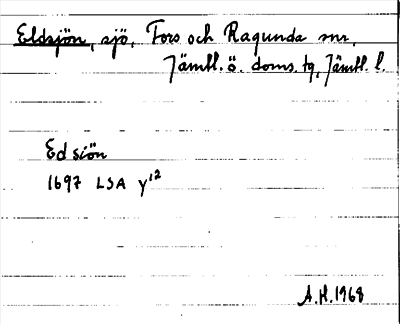 Eldsjön, sjö, Fors och Ragunda snr,
Jämtl. ö. doms. tg, Jämtl. l.
Edsiön
1697 LSA y¹²
A.H. 1968